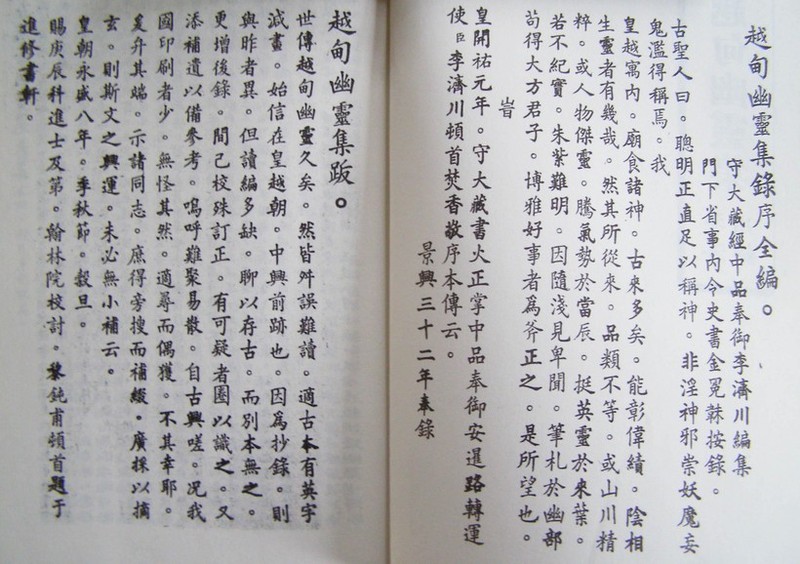 越甸幽靈集錄序全編。
守大藏經中品奉御李濟川編集
門下省事內令史書金冕䅵按錄。
古聖人曰。聰明正直足以稱神。非淫神邪祟妖魔妄
鬼濫得稱焉。我
皇越寓內。廟食諸神。古來多矣。能彰偉績。陰相
生靈者有幾哉。然其所從來。品類不等。或山川精
粹。或人物傑靈。騰氣勢於當辰。挺英靈於來葉。
若不紀實。朱紫難明。因隨淺見卑聞。筆札於幽部
苟得大方君子。博雅好事者為斧正之。是所望也。
旹
皇開祐元年。守大藏書火正掌中品奉御安暹路轉運
使臣李濟川頓首焚香敬序本傳云。
景興三十二年奉錄
越甸幽靈集跋。
世傳越甸幽靈久矣。然皆舛誤難讀。適古本有英字
減畫。始信在皇越朝。中興前跡也。因為抄錄。則
與昨者異。但讀編多缺。聊以存古。而別本無之。
更增後錄。間己校殊訂正。有可疑者圈以識之。又
添補遺以備參考。嗚呼難聚易散。自古興嗟。況我
國印刷者少。無怪其然。適尋而偶獲。不其幸耶。
爰升其端。示諸同志。庶得旁搜而補綴。廣採以摘
玄。則斯文之興運。未必無小補云。
皇朝永盛八年。季秋節。穀旦。
賜庚辰科進士及第。翰林院校討。黎純甫頓首題于
進修書軒。